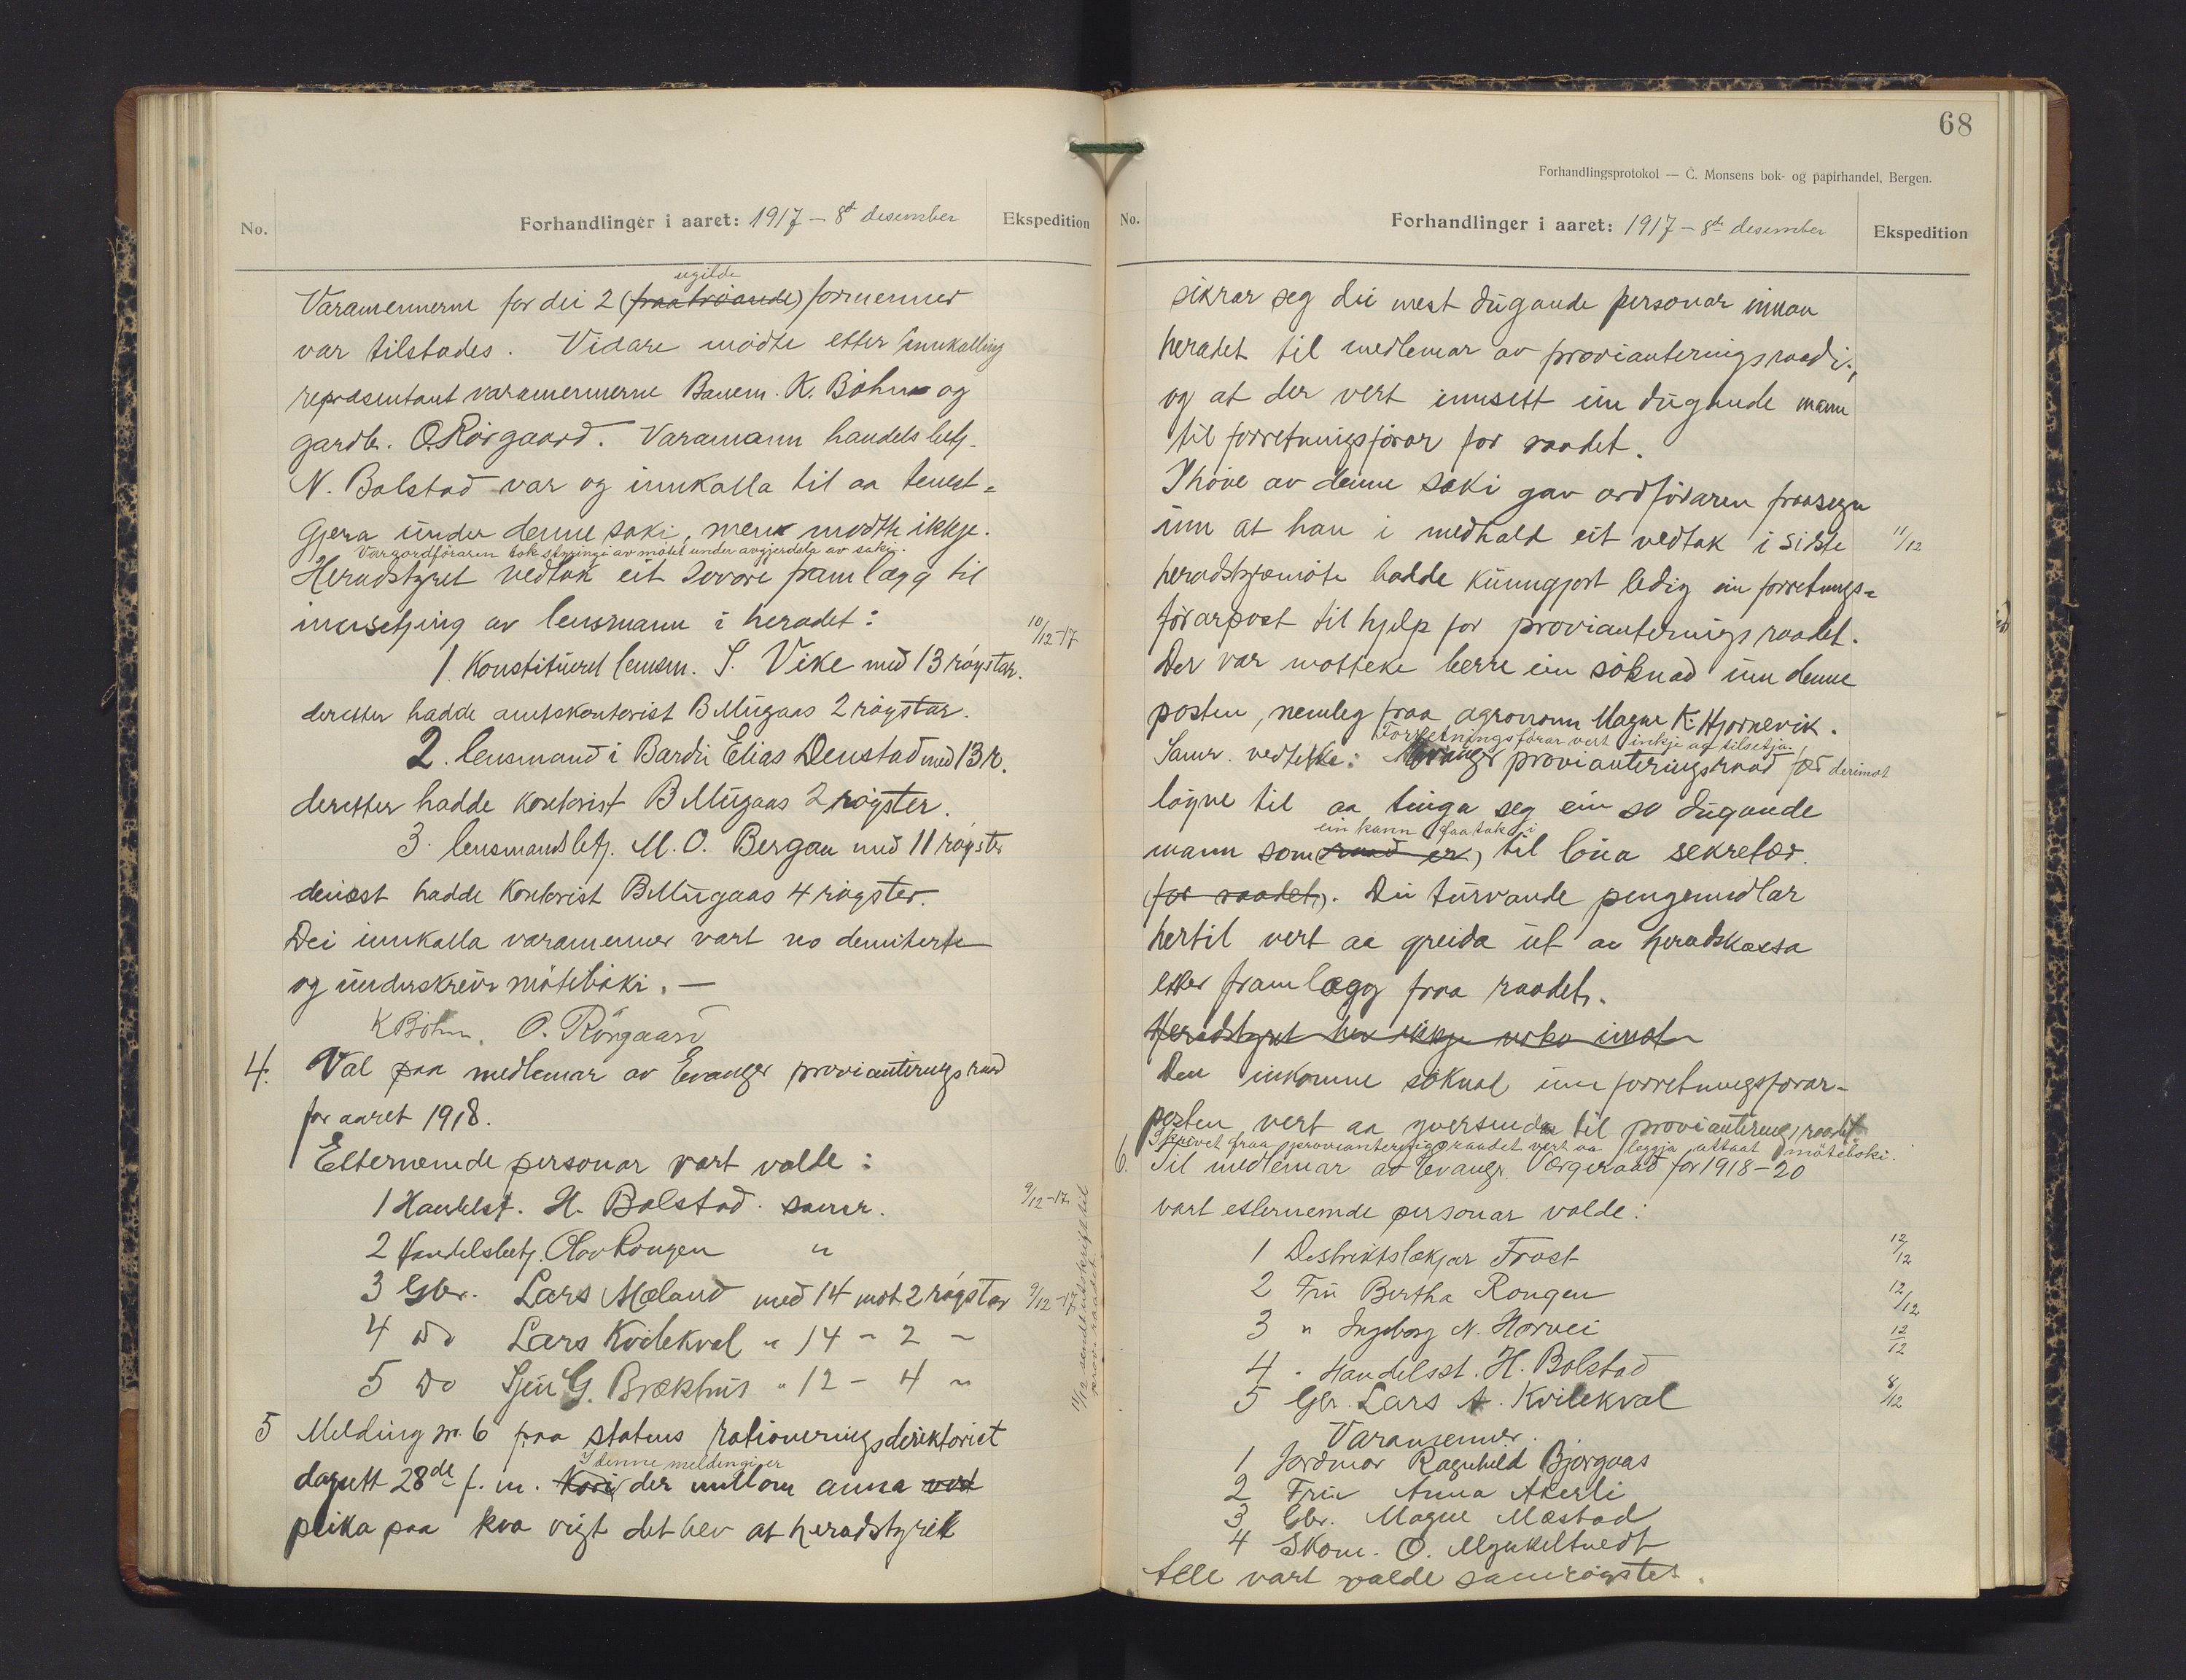 No.
Forhandlinger i aaret: 1917 – 8de desember
Ekspedition
ugilde
Varamennerne for dei 2 (fraatrøande) formenner
var tilstades. Vidare mødte etter innkalling
repræsentant varamennerne Banem. K. Bøhn og
gardbr. O. Rørgaard. Varamann handelsbetj.
N. Bolstad var og innkalla til aa tenest=
gjera under denne saki, men mødte ikkje.
Varaordføraren tok styringi av møtet under avgjerdsla av saki.
Heradstyret vedtok eit sovore framlegg til
innsetjing av lensmann i heradet:
10/12-17
1. Konstituerd lensm. S. Vike med 13 røystar.
deretter hadde amtskontorist B Mügaas 2 røystar.
2. lensmand i Bardu Elias Denstad med 13 r.
deretter hadde kontorist B Mügaas 2 røyster.
3. lensmandsbetj. M. O. Bergan med 11 røyster
dernæst hadde kontorist B Mügaas 4 røyster.
Dei innkalla varamenner vart no demiterte
og underskreiv møteboki. —
K Bøhn. O. Rørgaard
4. Val paa medlemar av Evanger provianteringsraad
for aaret 1918.
Etternemde personar vart valde:
1 Handelst. H. Bolstad samr.
9/12-17.
2 Handelsbetj. Olav Rongen "
3 Gbr. Lars Mæland med 14 mot 2 røystar
9/12-17
4 Do Lars Kvilekval " 14 - 2 -
5 Do Sjur G. Brækhus " 12 - 4 "
11/12 sendt utskrift til
prov. raadet
5 Melding nr. 6 fraa statens rationeringsdirektoriet
I denne meldingi er
dagsett 28de f. m. der millom anna vert
peika paa kva vigt det hev at heradstyret
68
Forhandlingsprotokol — C. Monsens bok- og papirhandel, Bergen.
No.
Forhandlinger i aaret: 1917 – 8de desember
Ekspedition
sikrar seg dei mest dugande personar innan
heradet til medlemar av provianteringsraadi,
og at der vert innsett ein dugande mann
til forretningsførar for raadet.
I høve av denne saki gav ordføraren fraasegn
um at han i medhald eit vedtak i siste
11/12
heradstyremøte hadde kunngjort ledig ein forretnings=
førarpost til hjelp for provianteringsraadet.
Der var motteke berre ein søknad um denne
posten, nemleg fraa agronom Magne K. Hjørnevik.
Forretningsførar vert inkje aa tilsetja.
Samr. vedteke: Evanger provianteringsraad fær derimot
løyve til aa tinga seg ein so dugande
ein kann faa tak i
mann som (raad er) til løna sekretær.
(for raadet). Dei turvande pengemidlar
hertil vert aa greida ut av heradskassa
etter framlegg fraa raadet.
Heradstyret hev ikkje noko imot
Den inkomne søknad um forretningsførar-
posten vert aa yversenda til provianteringsraadet
Skrivet fraa provianteringsraadet vert aa leggja attaat møteboki.
6. Til medlemar av Evanger Værgeraad for 1918–20
vart etternemde personar valde:
1 Distriktslækjar Frost
12/12
2 Fru Bertha Rongen
12/12
3 " Ingeborg N. Horvei
12/12
4 . Handelsst. H. Bolstad
5 Gbr. Lars A. Kvilekval
8/12
Varamenner.
1 Jordmor Ragnhild Bjørgaas
2 Fru Anna Akerli
3 Gbr. Magne Mæstad
4 Skom. O. Mynkeltvedt
Alle vart valde samrøystes.